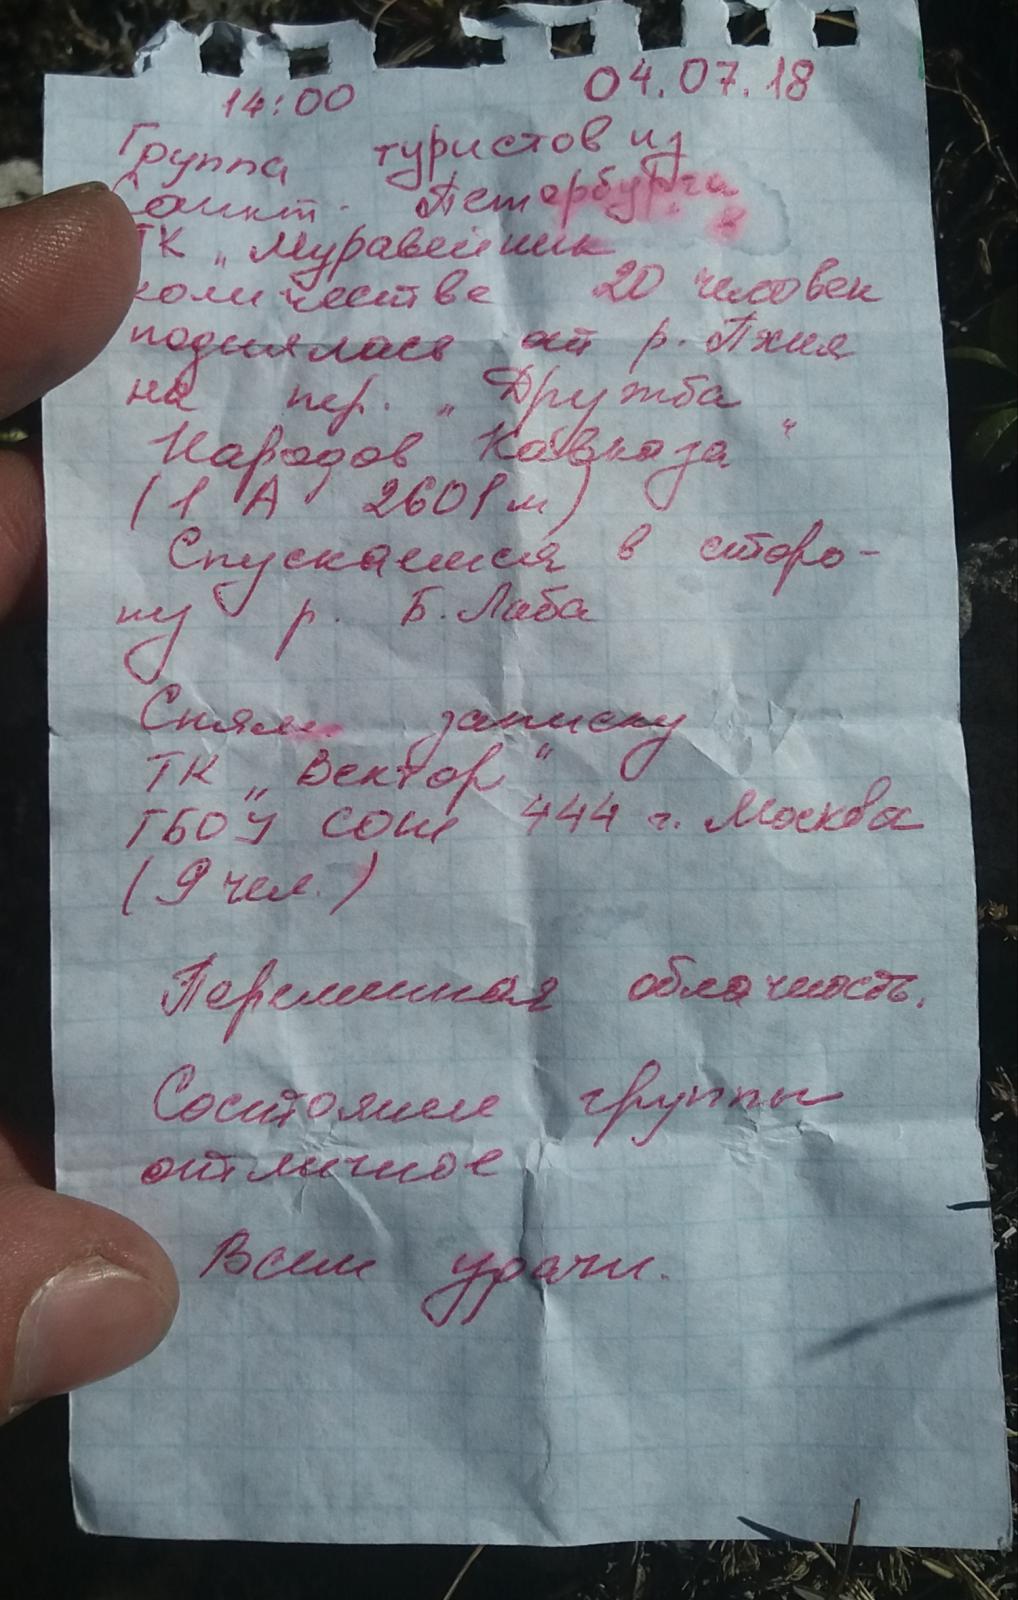 14:00 04.07.18
Группа туристов из
Санкт-Петербурга
ТК „Муравейник в
количестве 20 человек
поднялась от р. Пхия
на пер. „Дружба
Народов Кавказа"
(1 А 2601м)
Спускаемся в сторо-
ну р. Б. Лаба
Сняли записку
ТК „Вектор"
ГБОУ СОШ 444 г. Москва
(9 чел.)
Переменная облачность.
Состояние группы
отличное
Всем удачи.